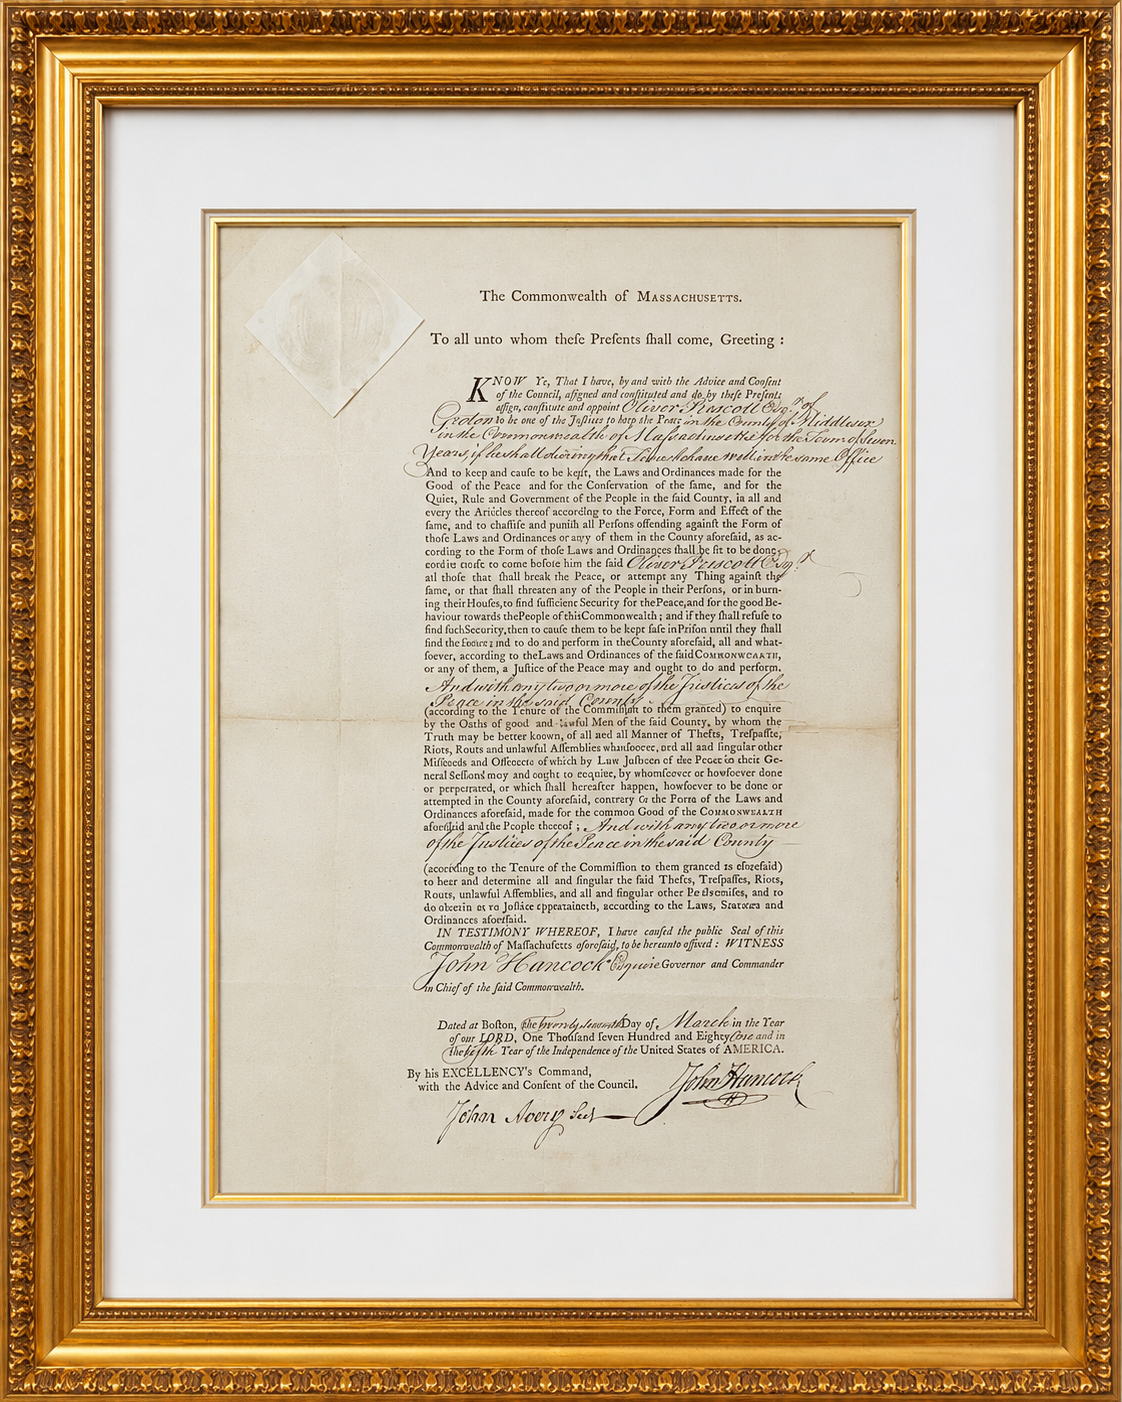 The Commonwealth of MASSACHUSETTS.
To all unto whom theſe Preſents ſhall come, Greeting :
KNOW Ye, That I have, by and with the Advice and Conſent
of the Council, aſſigned and conſtituted and do by theſe Preſents
aſſign, conſtitute and appoint Oliver Prescott Esqr. of
Groton to be one of the Juſtices to keep the Peace in the County of Middlesex
in the Commonwealth of Maſsachusetts for the Term of Seven
Years, if he shall during that Time behave well in the same Office
And to keep and cauſe to be kept, the Laws and Ordinances made for the
Good of the Peace and for the Conſervation of the ſame, and for the
Quiet, Rule and Government of the People in the ſaid County, in all and
every the Articles thereof according to the Force, Form and Effect of the
ſame, and to chaſtiſe and puniſh all Perſons offending againſt the Form of
thoſe Laws and Ordinances or any of them in the County aforeſaid, as ac-
cording to the Form of thoſe Laws and Ordinances ſhall be fit to be done,
to come before him the ſaid Oliver Prescott Esqr.
all thoſe that ſhall break the Peace, or attempt any Thing againſt the
ſame, or that ſhall threaten any of the People in their Perſons, or in burn-
ing their Houſes, to find ſufficient Security for the Peace, and for the good Be-
haviour towards the People of this Commonwealth ; and if they ſhall refuſe to
find ſuch Security, then to cauſe them to be kept ſafe in Priſon until they ſhall
find the and to do and perform in the County aforeſaid, all and what-
ſoever, according to the Laws and Ordinances of the ſaid COMMONWCAATH,
or any of them, a Juſtice of the Peace may and ought to do and perform,
And with any two or more of the Justices of the
Peace in the said County
(according to the Tenure of the Commiſſion to them granted) to enquire
by the Oaths of good and lawful Men of the ſaid County, by whom the
Truth may be better known, of all and all Manner of Thefts, Treſpaſſe,
Riots, Routs and unlawful Aſſemblies and all and ſingular other
of which by Law of the Peace in their Ge-
neral Seſſions may and ought to enquire, by whomſoever or howſoever done
or perpetrated, or which ſhall hereafter happen, howſoever to be done or
attempted in the County aforeſaid, contrary to the of the Laws and
Ordinances aforeſaid, made for the common Good of the COMMONWEALTH
aforeſaid and the People thereof ; And with any two or more
of the Justices of the Peace in the said County
(according to the Tenure of the Commiſſion to them granted as aforeſaid)
to hear and determine all and ſingular the ſaid Thefts, Treſpaſſes, Riots,
Routs, unlawful Aſſemblies, and all and ſingular other and to
do to according to the Laws, and
Ordinances aforeſaid.
IN TESTIMONY WHEREOF, I have cauſed the public Seal of this
Commonwealth of Maſſachuſetts aforeſaid, to be hereunto affixed : WITNESS
John Hancock Esquire Governor and Commander
in Chief of the ſaid Commonwealth.
Dated at Boſton, the twenty seventh Day of March in the Year
of our LORD, One Thouſand ſeven Hundred and Eighty One and in
the fifth Year of the Independence of the United States of AMERICA.
By his EXCELLENCY's Command,
with the Advice and Conſent of the Council.
John Hancock
John Avery Sect